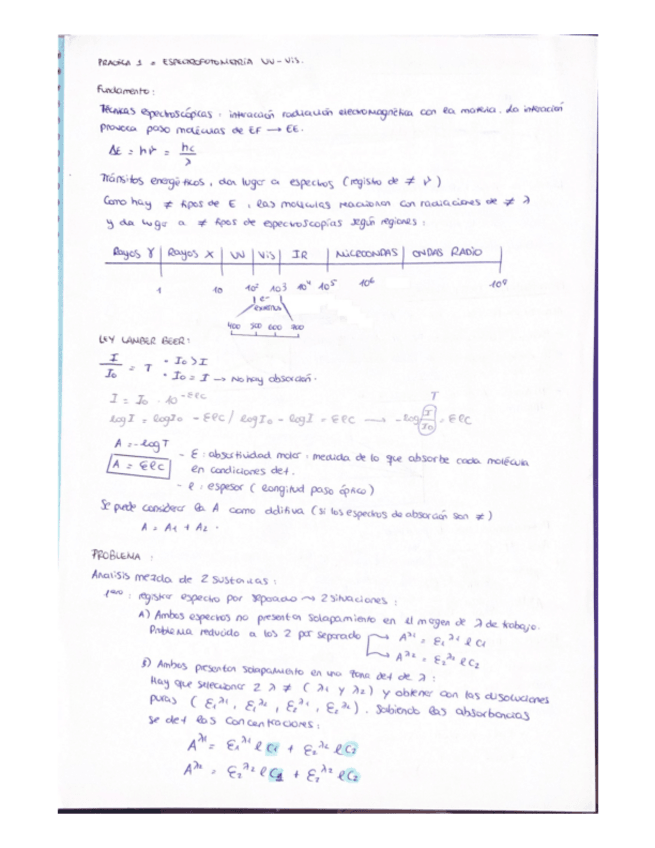 PRACTICA 1 = ESPECTROFOTOMETRÍA UV-Vis.
Fundamento:
Técnicas espectroscópicas: interacción radiación electromagnética con la materia. La interacción
provoca paso moléculas de EF → EE.
ΔE = hν = hc/λ
Tránsitos energéticos, dan lugar a espectros (registro de ≠ ν)
Como hay ≠ tipos de E, las moléculas reaccionan con radiaciones de ≠ λ
y da lugar a ≠ tipos de espectroscopías según regiones:
Rayos γ | Rayos X | UV | Vis | IR | MICROONDAS | ONDAS RADIO
1 10 10² 10³ 10⁴ 10⁵ 10⁶ 10⁹
e⁻
externos
400 500 600 700
LEY LAMBER BEER:
I/I₀ = T • I₀ > I
• I₀ = I → No hay absorción.
I = I₀ · 10^-εlc
T
log I = log I₀ - εlc / log I₀ - log I = εlc → -log I/I₀ = εlc
A = -log T
A = εlc
- ε: absortividad molar: medida de lo que absorbe cada molécula
en condiciones det.
- l: espesor (longitud paso óptico)
Se puede considerar la A como aditiva (si los espectros de absorción son ≠)
A = A₁ + A₂.
PROBLEMA:
Analisis mezcla de 2 sustancias:
1ero: registrar espectro por separado → 2 situaciones:
A) Ambos espectros no presentan solapamiento en el margen de λ de trabajo.
Problema reducido a los 2 por separado
A^λ1 = ε₁^λ1 l C₁
A^λ2 = ε₂^λ2 l C₂
B) Ambos presentan solapamiento en una zona det de λ:
Hay que seleccionar 2 λ ≠ (λ1 y λ2) y obtener con las disoluciones
puras (ε₁^λ1, ε₁^λ2, ε₂^λ1, ε₂^λ2). Sabiendo las absorbancias
se det las concentraciones:
A^λ1 = ε₁^λ1 l C₁ + ε₂^λ2 l C₂
A^λ2 = ε₂^λ2 l C₁ + ε₂^λ2 l C₂